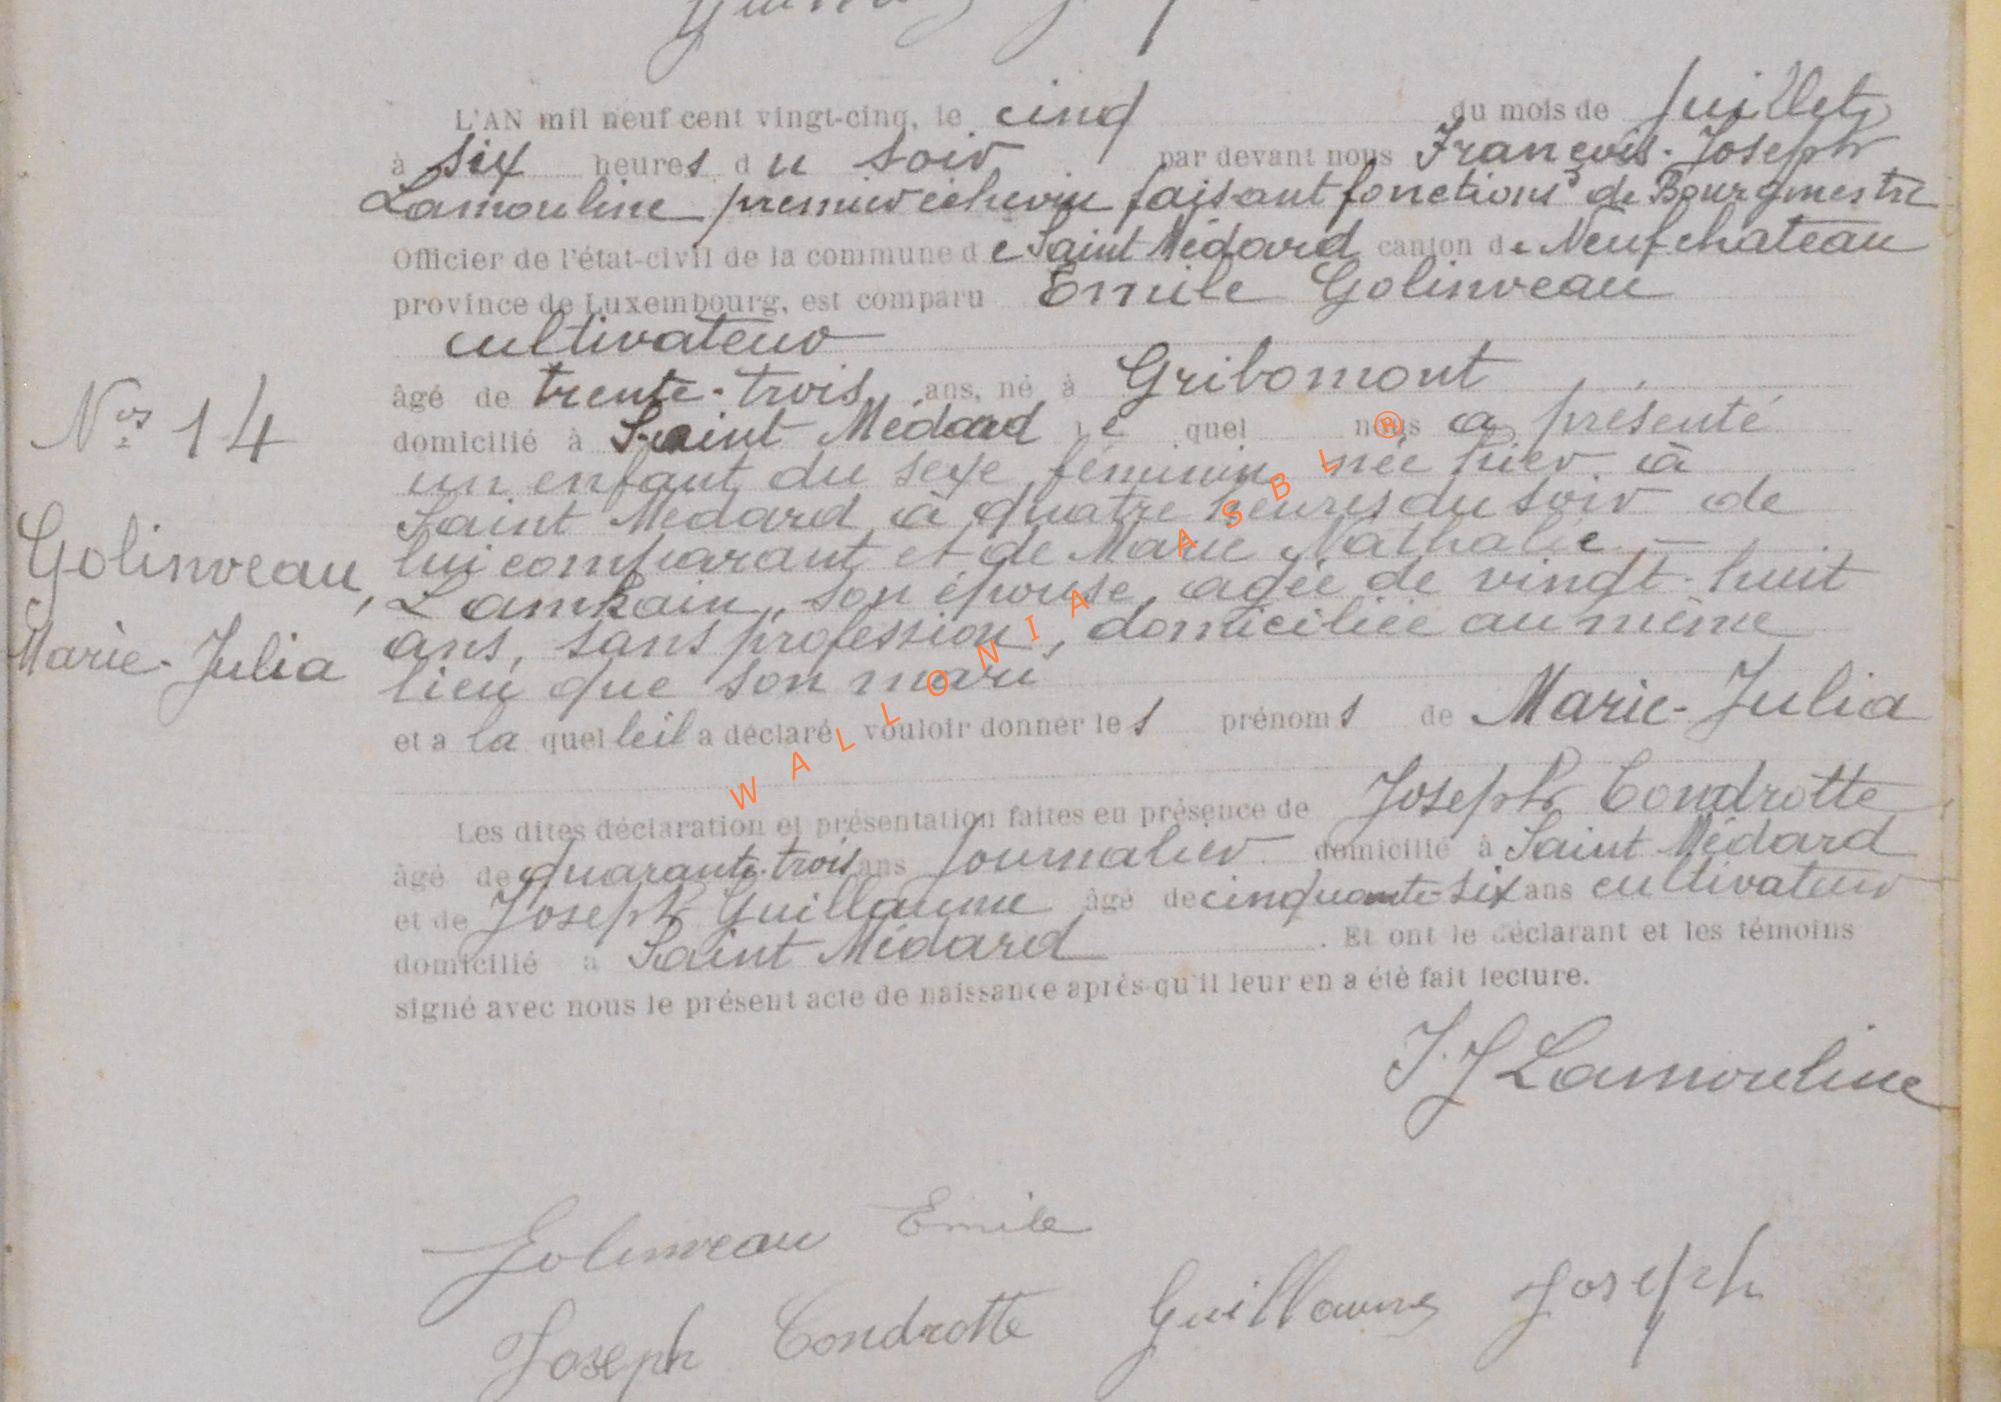 L'AN mil neuf cent vingt-cinq, le cinq du mois de Juillet
à six heures du soir par devant nous François-Joseph
Lamouline premier échevin faisant fonctions de Bourgmestre
Officier de l'état-civil de la commune de Saint Médard canton de Neufchateau
province de Luxembourg, est comparu Emile Golinveau
cultivateur
âgé de trente-trois ans, né à Gribomont
N° 14
domicilié à Saint Médard lequel nous a présenté
un enfant du sexe féminin née hier à
Saint Médard à quatre heures du soir de
Golinveau,
Marie-Julia
lui comparant et de Marie Nathalie
Lamkain, son épouse, agée de vingt-huit
ans, sans profession, domiciliée au même
lieu que son mari
et a laquelle il a déclaré vouloir donner les prénoms de Marie-Julia
Les dites déclaration et présentation faites en présence de Joseph Condrotte
âgé de quarante-trois ans Journalier domicilié à Saint Médard
et de Joseph Guillaume âgé de cinquante-six ans cultivateur
domicilié à Saint Médard. Et ont le déclarant et les témoins
signé avec nous le présent acte de naissance après qu'il leur en a été fait lecture.
F. J Lamouline
Golinveau Emile
Joseph Condrotte Guillaume Joseph
WALLONIA ASBL ®